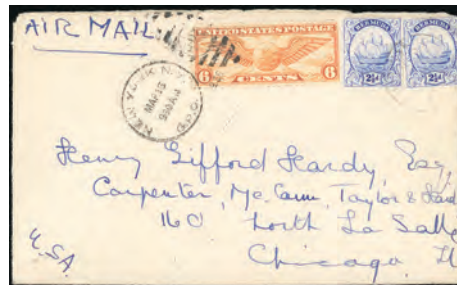 AIR MAIL
UNITED STATES POSTAGE
6 CENTS 6
BERMUDA BERMUDA
2½d 2½d
NEW YORK N.Y.
MAR 15
930 AM
G.P.O.
Henry Gifford Hardy, Esq,
Carpenter, Mc.Cann, Taylor &
160 North La Salle
Chicago, Il
U.S.A.